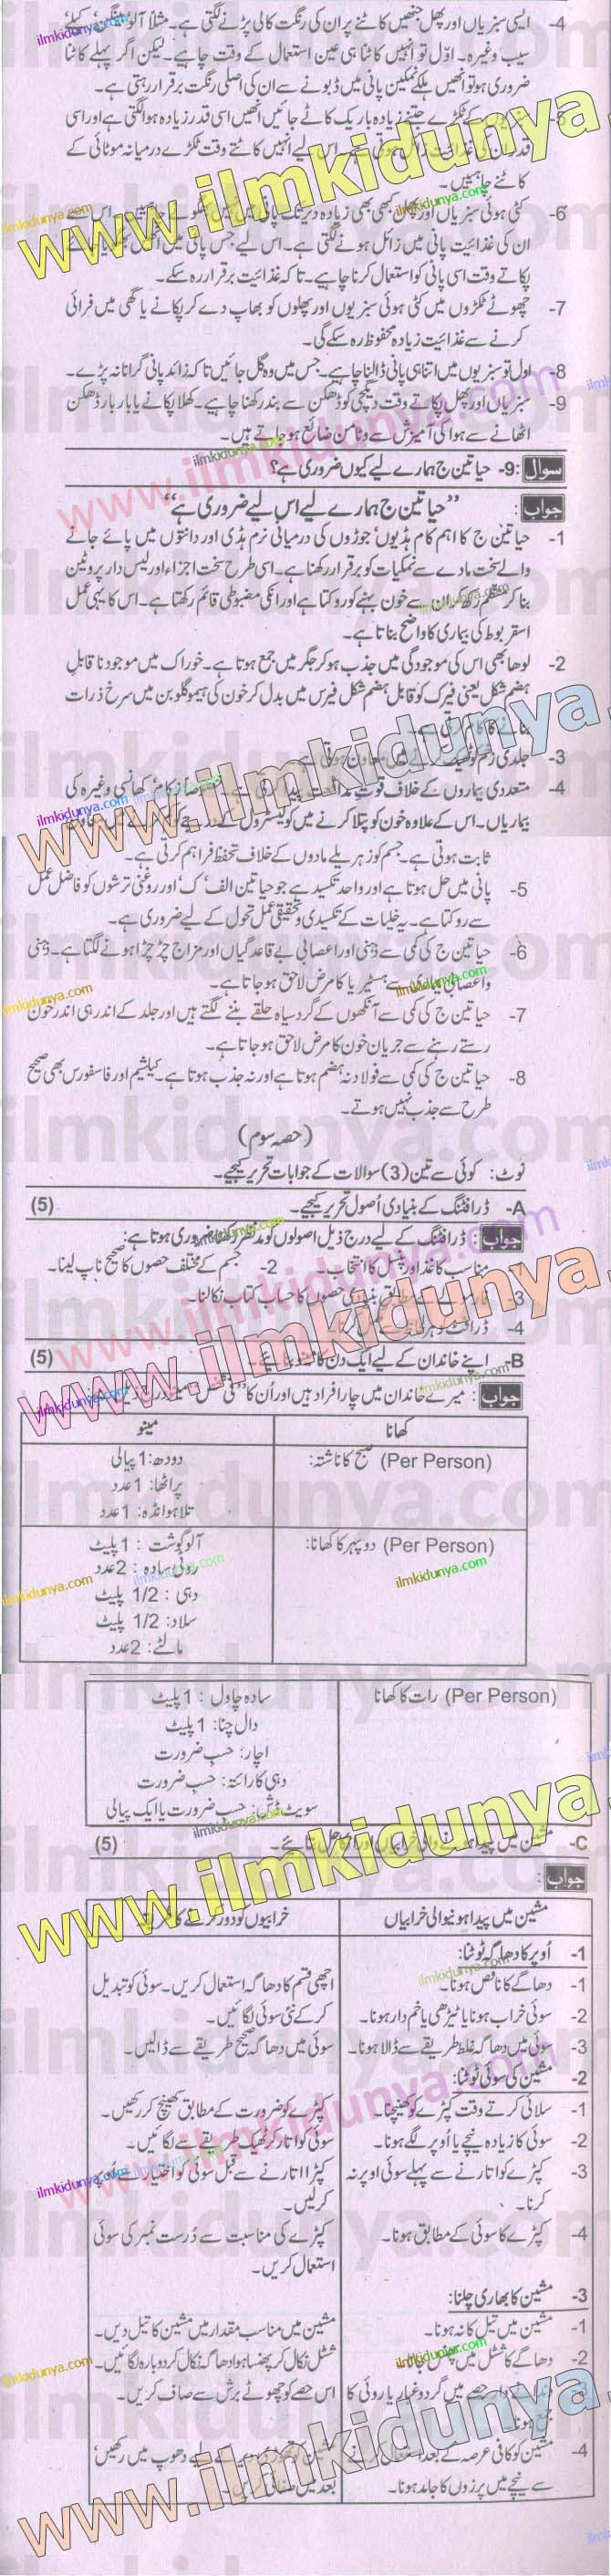 4- ایسی سبزیاں اور پھل جنھیں کاٹنے پر ان کی رنگت کالی پڑنے لگتی ہے۔ مثلاً آلو، بینگن، کیلے
سیب وغیرہ۔ اوّل تو انہیں کاٹنا ہی عین استعمال کے وقت چاہیے۔ لیکن اگر پہلے کاٹنا
ضروری ہو تو انھیں ہلکے نمکین پانی میں ڈبونے سے ان کی اصلی رنگت برقرار رہتی ہے۔
5- سبزیوں کے ٹکڑے جتنے زیادہ باریک کاٹے جائیں انھیں اسی قدر زیادہ ہوا لگتی ہے اور اسی
قدر ان کی غذائیت زائل ہوتی ہے۔ اس لیے انہیں کاٹتے وقت ٹکڑے درمیانہ موٹائی کے
کاٹنے چاہئیں۔
6- کٹی ہوئی سبزیاں اور پھل کبھی بھی زیادہ دیر تک پانی میں نہیں چاہئیں۔ اس سے
ان کی غذائیت پانی میں زائل ہونے لگتی ہے۔ اس لیے جس پانی میں انھیں
پکاتے وقت اسی پانی کو استعمال کرنا چاہیے۔ تاکہ غذائیت برقرار رہ سکے۔
7- چھوٹے ٹکڑوں میں کٹی ہوئی سبزیوں اور پھلوں کو بھاپ دے کر پکانے یا گھی میں فرائی
کرنے سے غذائیت زیادہ محفوظ رہ سکے گی۔
8- اول تو سبزیوں میں اتنا ہی پانی ڈالنا چاہیے۔ جس میں وہ گل جائیں تاکہ زائد پانی گرانا نہ پڑے۔
9- سبزیاں اور پھل پکاتے وقت دیگچی کو ڈھکن سے بند رکھنا چاہیے۔ کھلا پکانے یا بار بار ڈھکن
اٹھانے سے ہوا کی آمیزش سے وٹامن ضائع ہو جاتے ہیں۔
سوال 9:- حیاتین ج ہمارے لیے کیوں ضروری ہے؟
جواب: ”حیاتین ج ہمارے لیے اس لیے ضروری ہے“
1- حیاتین ج کا اہم کام ہڈیوں، جوڑوں کی درمیانی نرم ہڈی اور دانتوں میں پائے جانے
والے سخت مادے سے نمکیات کو برقرار رکھنا ہے۔ اسی طرح سخت اجزاء اور لیس دار پروٹین
بنا کر منظم رکھ کر ان سے خون بہنے کو روکتا ہے اور انکی مضبوطی قائم رکھتا ہے۔ اس کا یہی عمل
اسقربوط کی بیماری کا واضح بناتا ہے۔
2- لوہا بھی اس کی موجودگی میں جذب ہو کر جگر میں جمع ہوتا ہے۔ خوراک میں موجود ناقابل
ہضم شکل یعنی فیرک کو قابل ہضم شکل فیرس میں بدل کر خون کی ہیموگلوبن میں سرخ ذرات
بنانے کا کام
3- جلدی زخم ٹھیک میں معاون ہوتی ہے
4- متعددی بیماروں کے خلاف قوت مدافعت پیدا کرتی ہے۔ زکام، کھانسی وغیرہ کی
بیماریاں۔ اس کے علاوہ خون کو پتلا کرنے میں کولیسٹرول کے درجے کو
ثابت ہوتی ہے۔ جسم کو زہریلے مادوں کے خلاف تحفظ فراہم کرتی ہے۔
5- پانی میں حل ہوتا ہے اور واحد تکسید ہے جو حیاتین الف، ک، اور روغنی ترشوں کو فاضل عمل
سے روکتا ہے۔ یہ خلیات کے تکسیدی و تخفیفی عمل تحول کے لیے ضروری ہے۔
6- حیاتین ج کی کمی سے ذہنی اور اعصابی بے قاعدگیاں اور مزاج چڑچڑا ہونے لگتا ہے۔ ذہنی
و اعصابی سے ہسٹیریا کا مرض لاحق ہو جاتا ہے۔
7- حیاتین ج کی کمی سے آنکھوں کے گرد سیاہ حلقے بننے لگتے ہیں اور جلد کے اندر ہی اندر خون
رستے رہنے سے جریان خون کا مرض لاحق ہو جاتا ہے۔
8- حیاتین ج کی کمی سے فولاد نہ ہضم ہوتا ہے اور نہ جذب ہوتا ہے۔ کیلشیم اور فاسفورس بھی صحیح
طرح سے جذب نہیں ہوتے۔
(حصہ سوم)
نوٹ: کوئی سے تین (3) سوالات کے جوابات تحریر کیجیے۔
A- ڈرافٹنگ کے بنیادی اُصول تحریر کیجیے۔ (5)
جواب: ڈرافٹنگ کے لیے درج ذیل اصولوں کو مدنظر رکھنا ضروری ہوتا ہے:
مناسب کاغذ اور پنسل کا انتخاب۔ 2- جسم کے مختلف حصوں کا صحیح ناپ لینا۔
3- بنیادی حصوں کا حساب کتاب نکالنا۔
4- ڈرافٹ
B- اپنے خاندان کے لیے ایک دن کا مینو بنائیے۔ (5)
جواب: میرے خاندان میں چار افراد ہیں اور اُن کا
کھانا مینو
صبح کا ناشتہ: (Per Person) دودھ: 1 پیالی
پراٹھا: 1 عدد
تلا ہوا انڈہ: 1 عدد
دوپہر کا کھانا: (Per Person) آلو گوشت: 1 پلیٹ
روٹی سادہ: 2 عدد
دہی: 1/2 پلیٹ
سلاد: 1/2 پلیٹ
مالٹے: 2 عدد
رات کا کھانا (Per Person) سادہ چاول: 1 پلیٹ
دال چنا: 1 پلیٹ
اچار: حسبِ ضرورت
دہی کا رائتہ: حسبِ ضرورت
سویٹ ڈش: حسبِ ضرورت یا ایک پیالی
C- مشین میں پیدا ہونے والی خرابیاں اور ان کا حل بتائیے۔ (5)
جواب:
مشین میں پیدا ہونیوالی خرابیاں خرابیوں کو دور کرنے کا طریقہ
1- اُوپر کا دھاگہ ٹوٹنا:
1- دھاگے کا ناقص ہونا۔ اچھی قسم کا دھاگہ استعمال کریں۔ سوئی کو تبدیل
2- سوئی خراب ہونا یا ٹیڑھی یا خم دار ہونا۔ کر کے نئی سوئی لگائیں۔
3- سوئی میں دھاگہ غلط طریقے سے ڈالا ہونا۔ سوئی میں دھاگہ صحیح طریقے سے ڈالیں۔
2- مشین کی سوئی ٹوٹنا:
1- سلائی کرتے وقت کپڑے کو کھینچنا۔ کپڑے کو ضرورت کے مطابق کھینچ کر رکھیں۔
2- سوئی کا زیادہ نیچے یا اُوپر لگے ہونا۔ سوئی کو اتار کر ٹھیک طریقے سے لگائیں۔
3- کپڑے کو اتارنے سے پہلے سوئی اوپر نہ کپڑا اتارنے سے قبل سوئی کو احتیاط سے اُوپر
کرنا۔ کر لیں۔
4- کپڑے کا سوئی کے مطابق ہونا۔ کپڑے کی مناسبت سے دُرست نمبر کی سوئی
استعمال کریں۔
3- مشین کا بھاری چلنا:
1- مشین میں تیل کا نہ ہونا۔ مشین میں مناسب مقدار میں مشین کا تیل دیں۔
2- دھاگے کا شٹل میں پھنس جانا۔ شٹل نکال کر پھنسا ہوا دھاگہ نکال کر دوبارہ لگائیں۔
3- دار حصے میں گرد و غبار یا روئی کا اس حصے کو چھوٹے برش سے صاف کریں۔
جمع ہونا۔
4- مشین کو کافی عرصہ کے بعد استعمال کرنے مشین کو تھوڑی دیر کے لیے دھوپ میں رکھیں،
سے نیچے میں پرزوں کا جامد ہونا۔ بعد میں صفائی کریں۔
www.ilmkidunya.com
ilmkidunya.com